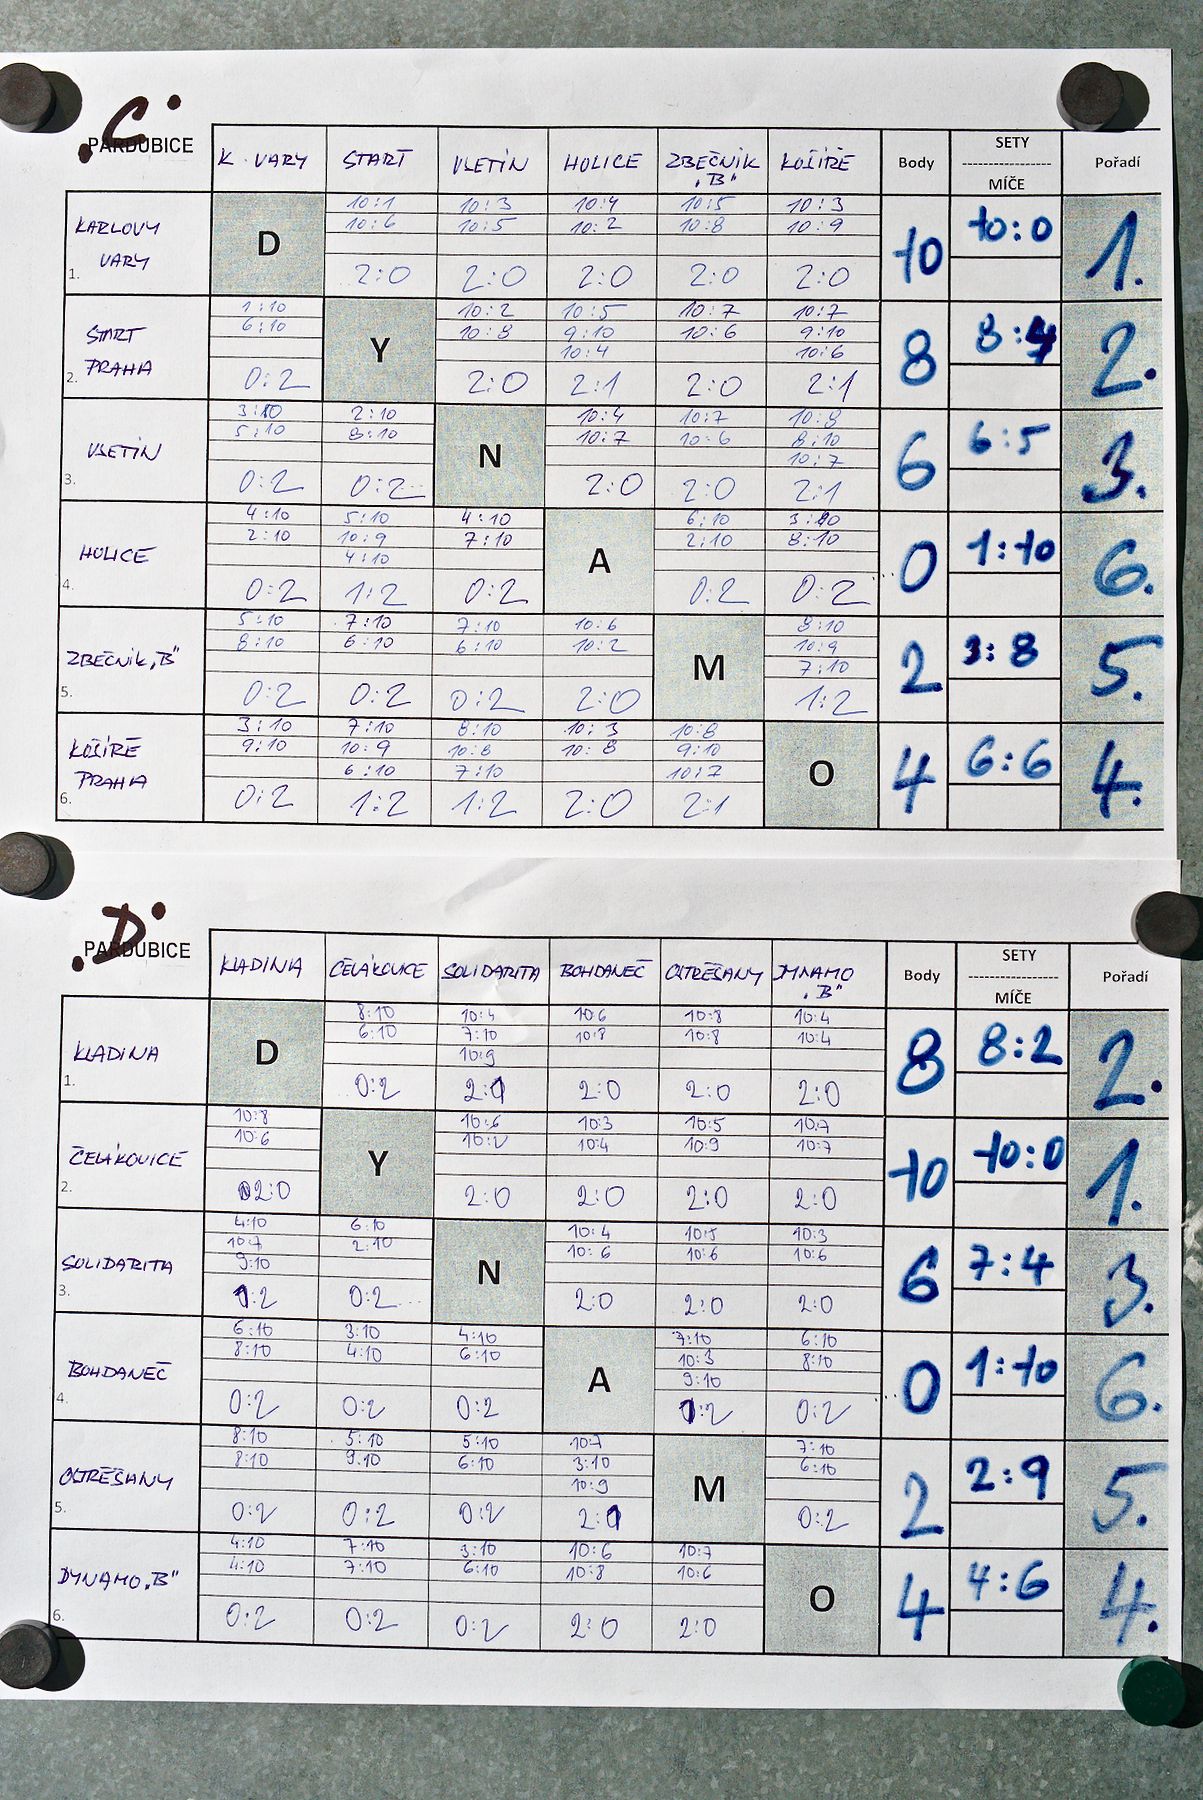 "C"
PARDUBICE
K. VARY START VLETÍN HOLICE ZBEČNÍK "B" KOŠÍŘE Body SETY MÍČE Pořadí
10:1 10:3 10:4 10:5 10:3
10:6 10:5 10:2 10:8 10:9
1. KARLOVY VARY D 2:0 2:0 2:0 2:0 2:0 10 10:0 1.
1:10 10:2 10:5 10:7 10:7
6:10 10:8 9:10 10:6 9:10
10:4 10:6
2. START PRAHA 0:2 Y 2:0 2:1 2:0 2:1 8 8:4 2.
3:10 2:10 10:4 10:7 10:8
5:10 8:10 10:7 10:6 8:10
10:7
3. VLETÍN 0:2 0:2 N 2:0 2:0 2:1 6 6:5 3.
4:10 5:10 4:10 6:10 3:10
2:10 10:9 7:10 2:10 8:10
4:10
4. HOLICE 0:2 1:2 0:2 A 0:2 0:2 0 1:10 6.
5:10 7:10 7:10 10:6 8:10
8:10 6:10 6:10 10:2 10:9
7:10
5. ZBEČNÍK "B" 0:2 0:2 0:2 2:0 M 1:2 2 3:8 5.
3:10 7:10 8:10 10:3 10:8
9:10 10:9 10:8 10:8 9:10
6:10 7:10 10:7
6. KOŠÍŘE PRAHA 0:2 1:2 1:2 2:0 2:1 O 4 6:6 4.
"D"
PARDUBICE
KLADINA ČELÁKOVICE SOLIDARITA BOHDANEČ OSTŘEŠANY DYNAMO "B" Body SETY MÍČE Pořadí
8:10 10:4 10:6 10:8 10:4
6:10 7:10 10:8 10:8 10:4
10:9
1. KLADINA D 0:2 2:1 2:0 2:0 2:0 8 8:2 2.
10:8 10:6 10:3 10:5 10:7
10:6 10:2 10:4 10:9 10:7
2. ČELÁKOVICE 2:0 Y 2:0 2:0 2:0 2:0 10 10:0 1.
4:10 6:10 10:4 10:5 10:3
10:7 2:10 10:6 10:6 10:6
9:10
3. SOLIDARITA 1:2 0:2 N 2:0 2:0 2:0 6 7:4 3.
6:10 3:10 4:10 7:10 6:10
8:10 4:10 6:10 10:3 8:10
9:10
4. BOHDANEČ 0:2 0:2 0:2 A 1:2 0:2 0 1:10 6.
8:10 5:10 5:10 10:7 7:10
8:10 9:10 6:10 3:10 6:10
10:9
5. OSTŘEŠANY 0:2 0:2 0:2 2:1 M 0:2 2 2:9 5.
4:10 7:10 3:10 10:6 10:7
4:10 7:10 6:10 10:8 10:6
6. DYNAMO "B" 0:2 0:2 0:2 2:0 2:0 O 4 4:6 4.